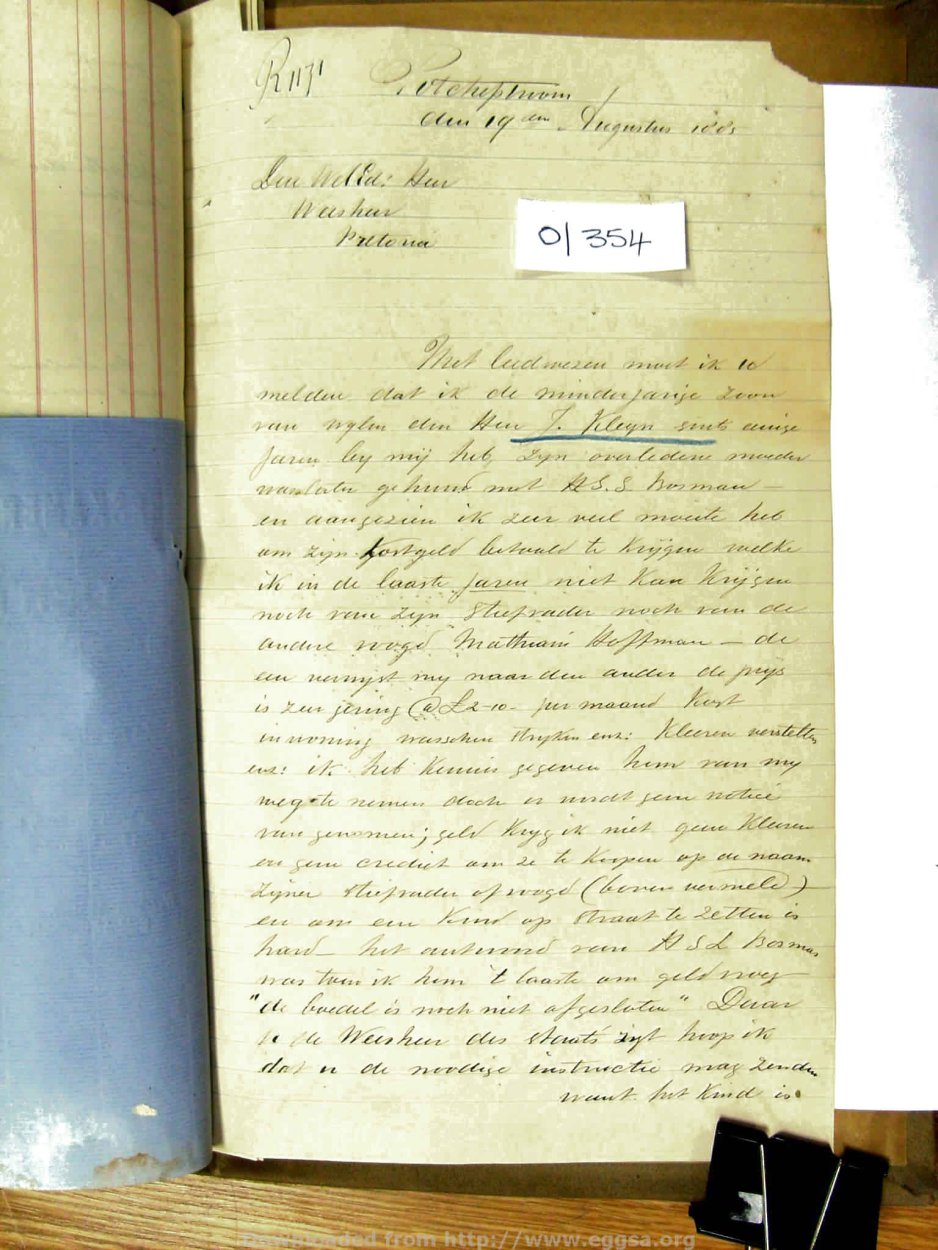 R 1171
Potchefstroom
den 19den Augustus 1885
Den WelEd: Heer
Weesheer
Pretoria
0/354
Met leedwezen moet ik u
melden dat ik de minderjarige zoon
van wylen den Heer J. Kleyn sints einige
Jaren by mij heb, zyn overledene moeder
was later gehuwd met H.S.S. Bosman –
en aangezien ik zeer veel moeite heb
om zijn kostgeld betaald te krijgen welke
ik in de laaste jaren niet kan krijgen
noch van zyn stiefvader noch van de
andere voogd Mathuris Hoffman – de
een verwyst my naar den ander de prijs
is zeer gering @ £2-10- per maand Kost
inwoning wasschen stryken enz: Kleeren verstellen
enz: ik heb kennis gegeven hem van my
weg te nemen doch er wordt geen notice
van genomen; geld kryg ik niet geen kleeren
en geen crediet om ze te koopen op de naam
zyner stiefvader of voogd (boven vermeld)
en om een kind op straat te zetten is
hard – het antwoord van H S L Bosman
was toen ik hem 't laaste om geld vroeg
"de boedel is noch niet afgesloten" Daar
u de Weesheer des staats zyt hoop ik
dat u de noodige instructie mag zenden
want het kind is
Downloaded from http://www.eggsa.org